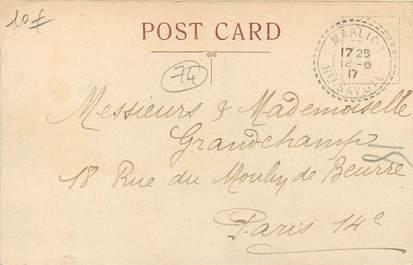 10€
POST CARD
MARLIOZ
17 25
18-6
17
HTE SAVOIE
74
Messieurs & Mademoiselle
Grandchamp
18 Rue du Moulin de Beurre
Paris 14e